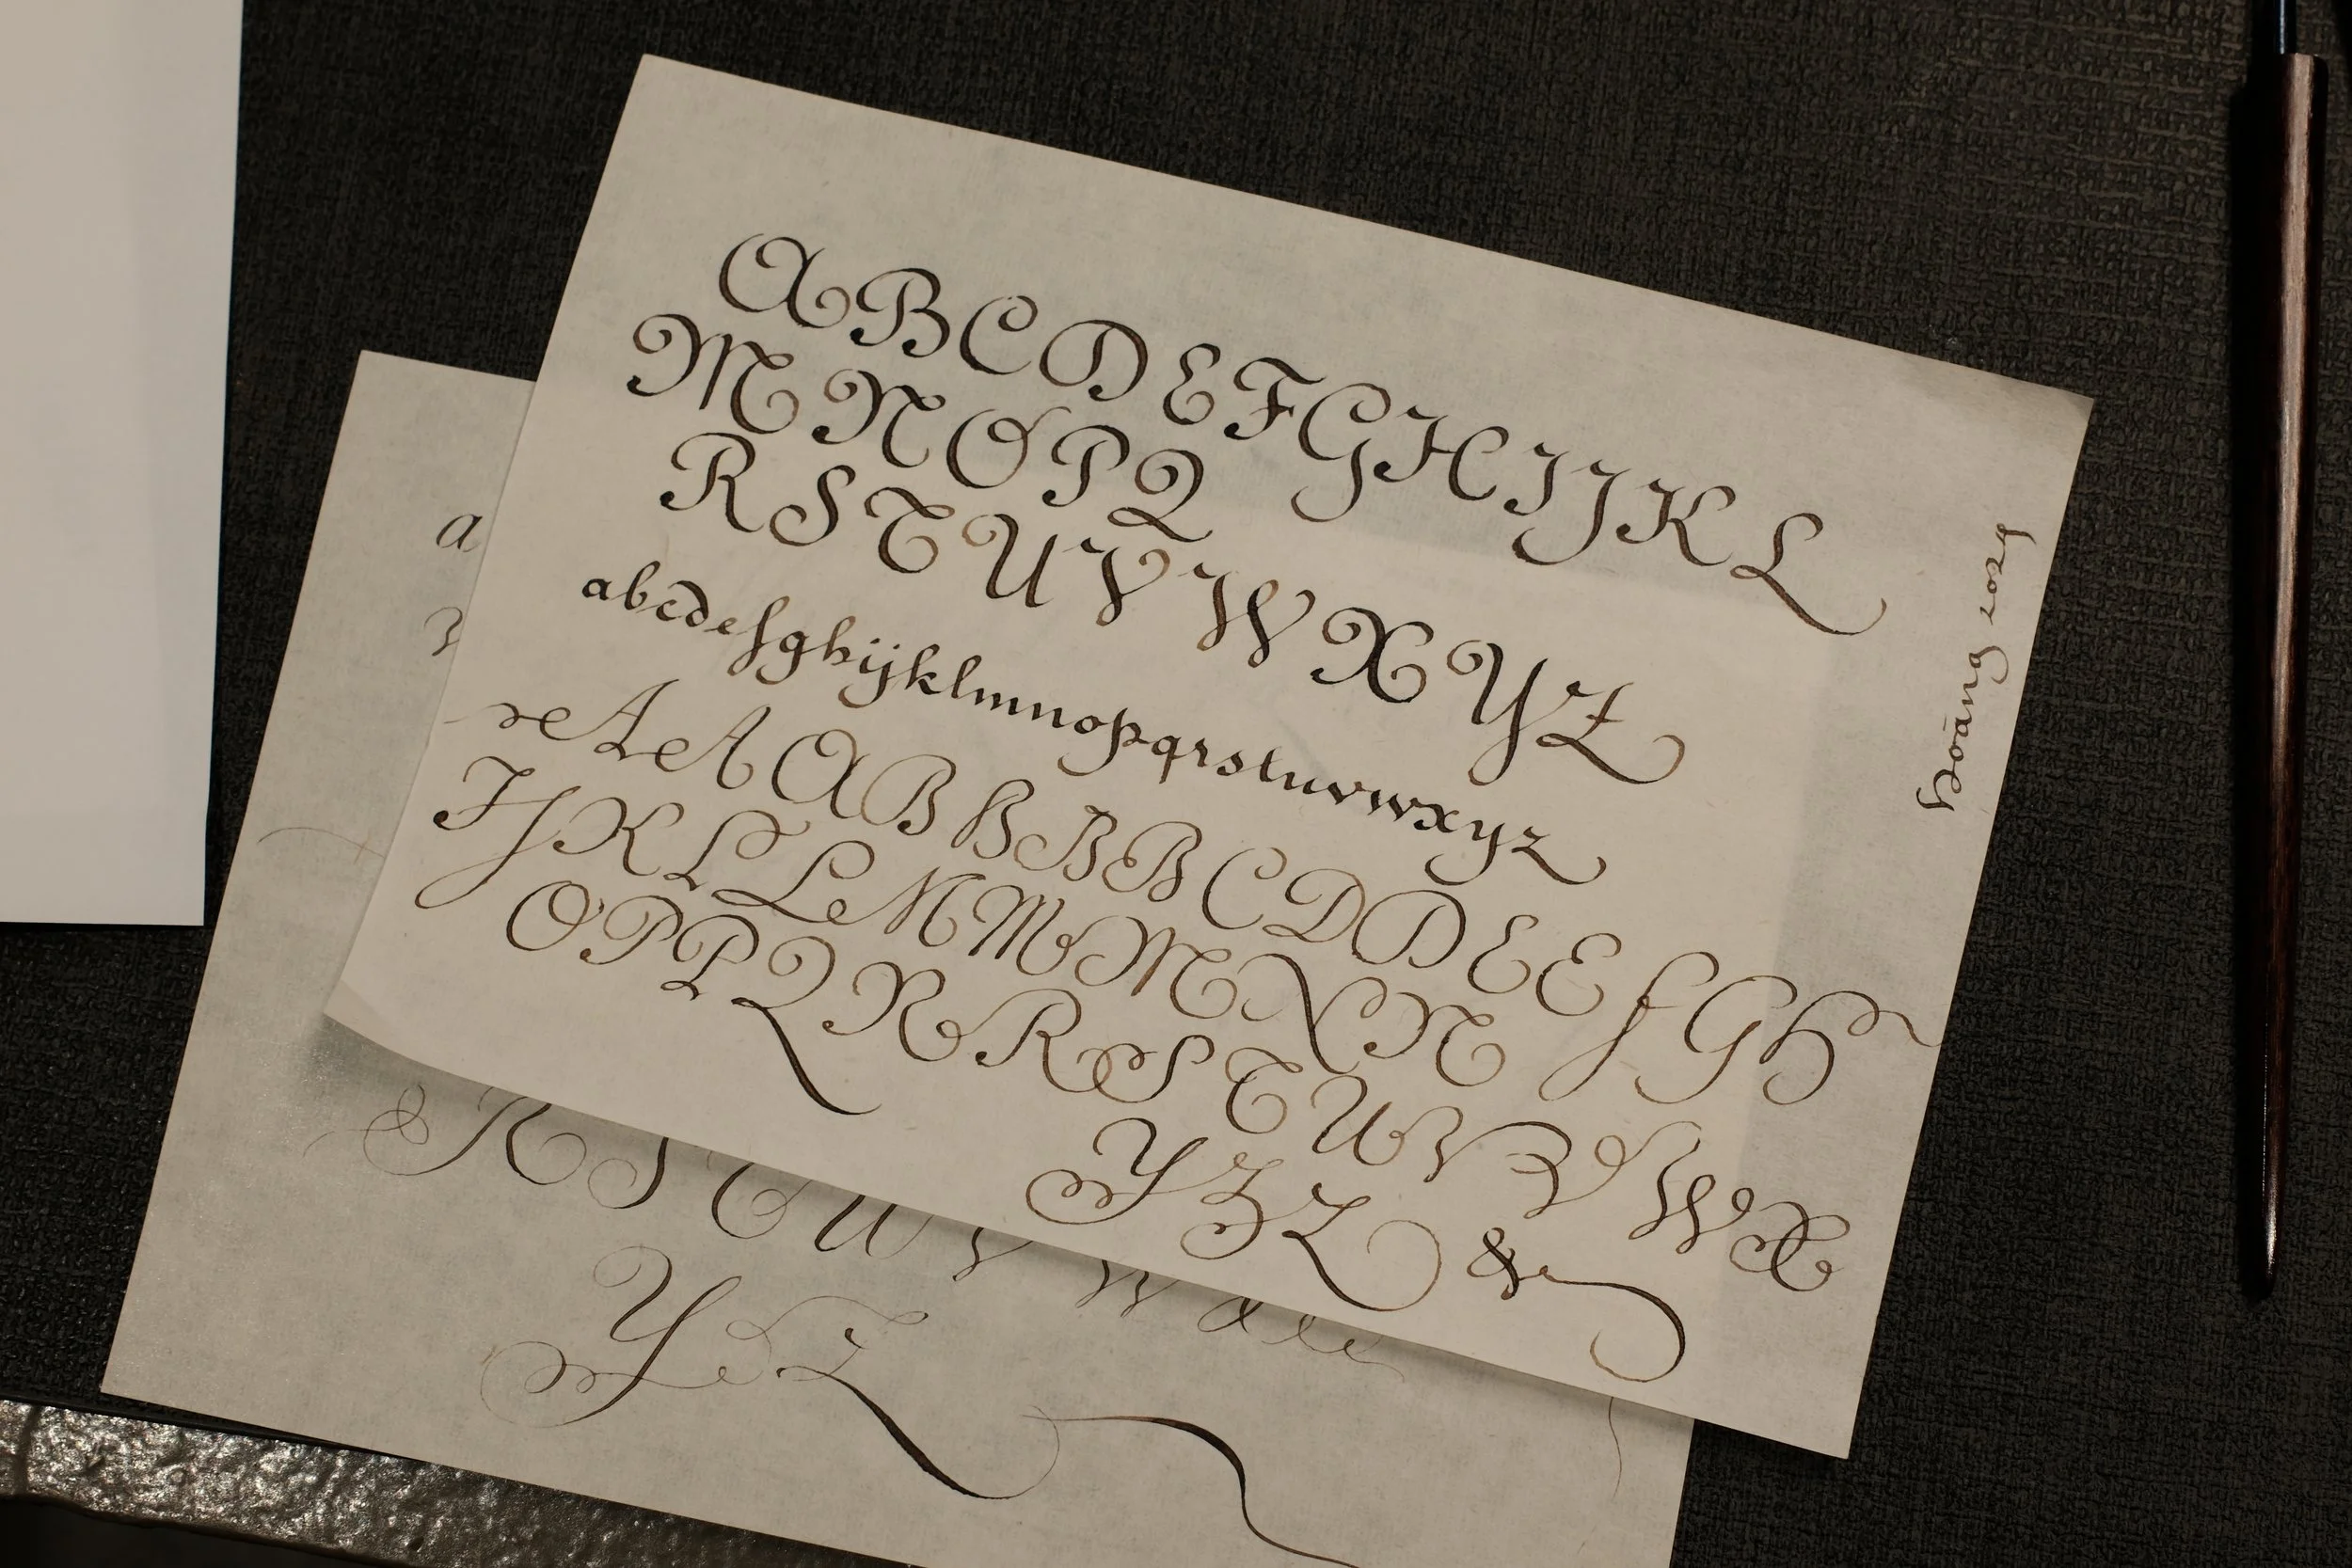 A B C D E F G H I J K L
M N O P Q
R S T U V W X Y Z
abcdefghijklmnopqrstuvwxyz
A A A B B B B C D D E E F G H
I J K L L M M M N N
O P P Q R R S T U V V W X
Y Z Z &
a
3
R S T U V W
Y Z